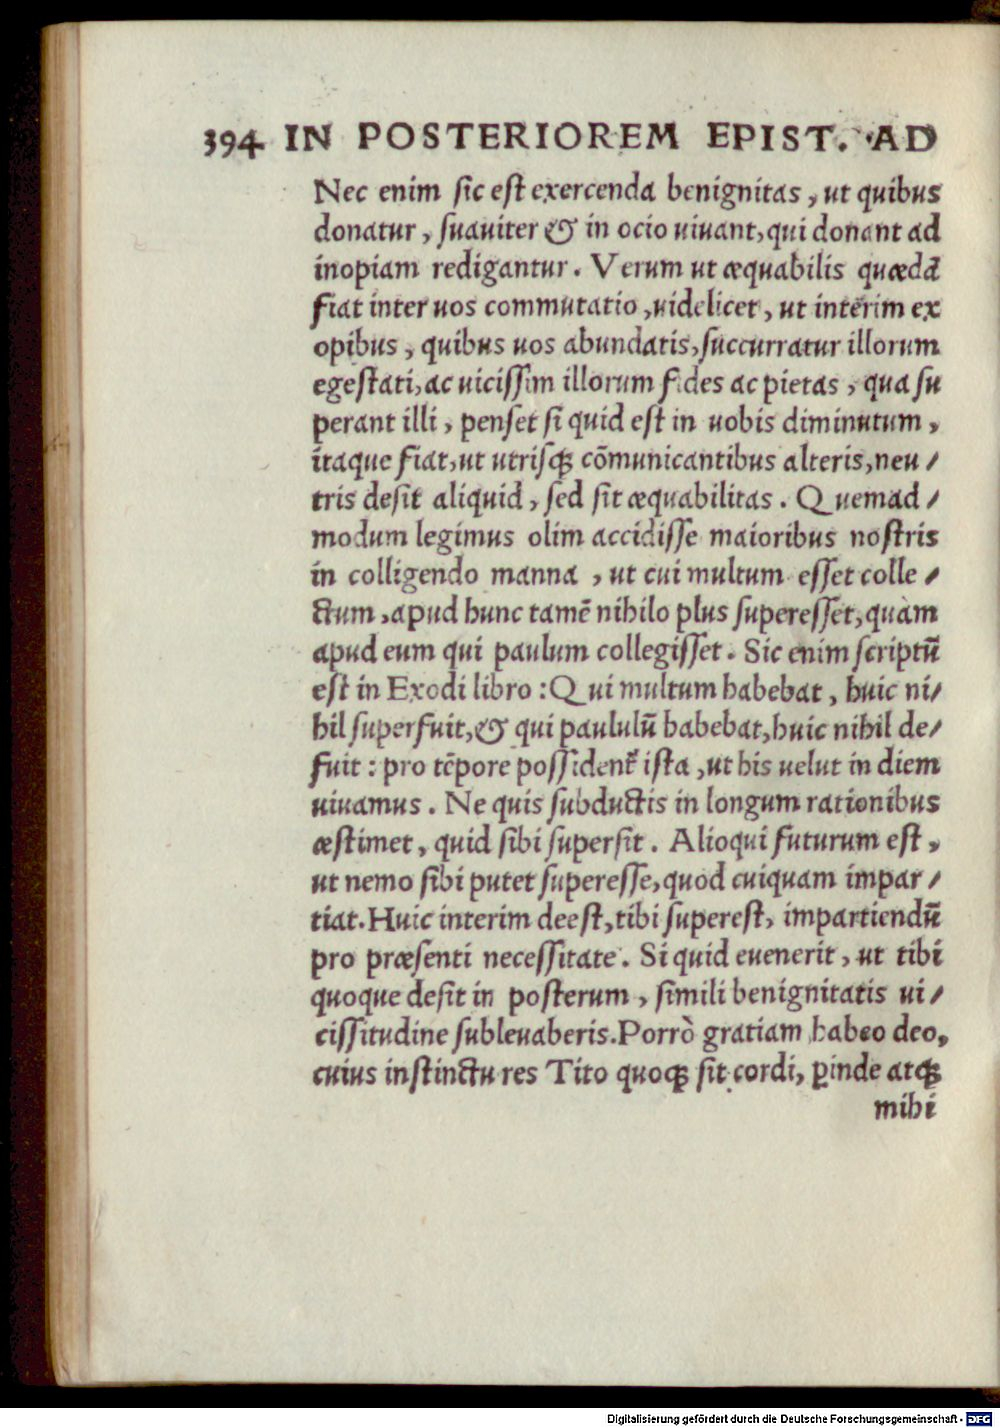 394 IN POSTERIOREM EPIST. AD
Nec enim sic est exercenda benignitas, ut quibus
donatur, suauiter & in ocio uiuant, qui donant ad
inopiam redigantur. Verum ut æquabilis quædā
fiat inter uos commutatio, uidelicet, ut interim ex
opibus, quibus uos abundatis, succurratur illorum
egestati, ac uicissim illorum fides ac pietas, qua su
perant illi, penset si quid est in uobis diminutum,
itaque fiat, ut utrisqꝫ cōmunicantibus alteris, neu/
tris desit aliquid, sed sit æquabilitas. Quemad/
modum legimus olim accidisse maioribus nostris
in colligendo manna, ut cui multum esset colle/
ctum, apud hunc tamē nihilo plus superesset, quàm
apud eum qui paulum collegisset. Sic enim scriptū
est in Exodi libro: Qui multum habebat, huic ni/
hil superfuit, & qui paululū habebat, huic nihil de/
fuit: pro tēpore possident᷑ ista, ut his uelut in diem
uiuamus. Ne quis subductis in longum rationibus
æstimet, quid sibi supersit. Alioqui futurum est,
ut nemo sibi putet superesse, quod cuiquam impar/
tiat. Huic interim deest, tibi superest, impartiendū
pro præsenti necessitate. Si quid euenerit, ut tibi
quoque desit in posterum, simili benignitatis ui/
cissitudine subleuaberis. Porrò gratiam habeo deo,
cuius instinctu res Tito quoqꝫ sit cordi, ꝑinde atqꝫ
mihi
Digitalisierung gefördert durch die Deutsche Forschungsgemeinschaft - DFG